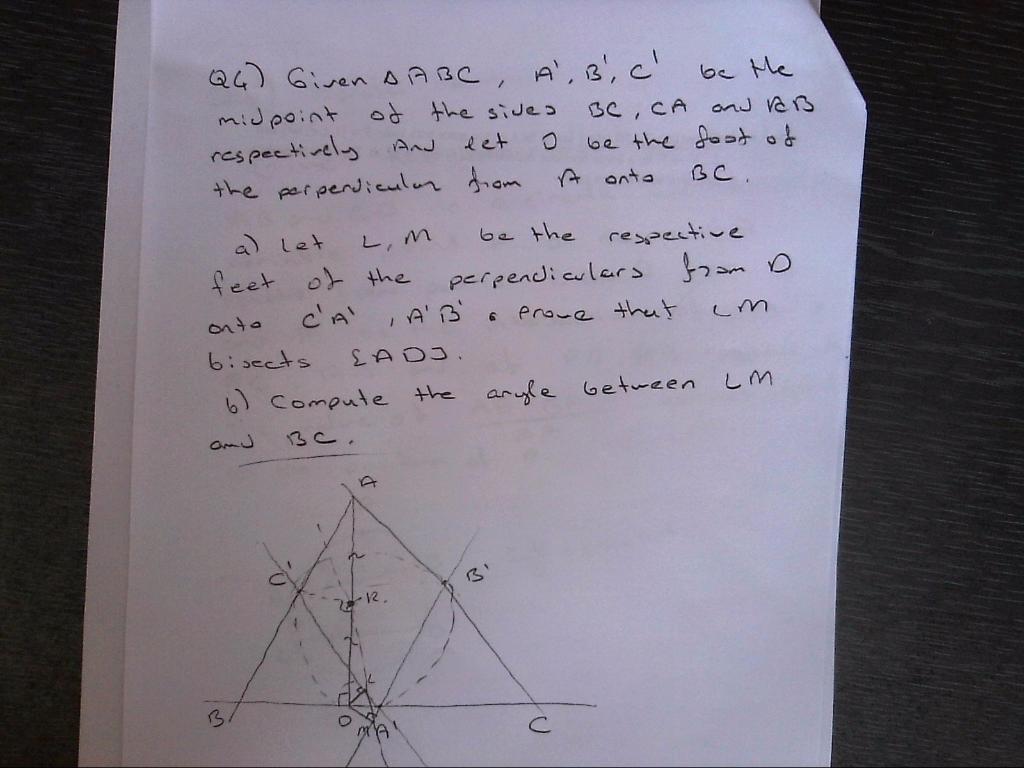 Q4) Given Δ ABC , A', B', C' be the
midpoint of the sides BC , CA and AB
respectively And let D be the foot of
the perpendicular from A onto BC .
a) let L, M be the respective
feet of the perpendiculars from D
onto C'A' , A'B' . Prove that LM
bisects [AD].
b) Compute the angle between LM
and BC .
A
C'
B'
R.
L
B
D
M
A'
C